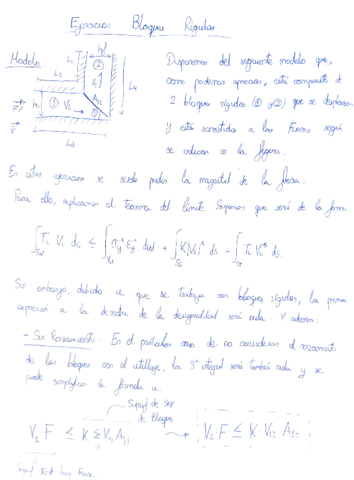 Ejercicios Bloques Rígidos
Modelo.
L₁ h₂
L₂ ② V₂ L₄
h₁ ① V₁ A₁₂
F, V
L₃
Disponemos del siguiente modelo que,
como podemos apreciar, está compuesto de
2 bloques rígidos (① y ②) que se desplazan
y está sometido a las Fuerzas según
se indican en la figura.
En estos ejercicios se suele pedir la magnitud de la fuerza.
Para ello, aplicamos el Teorema del límite Superior que será de la form.
Sin embargo, debido a que se trabaja con bloques rígidos, la primera
expresión a la derecha de la desigualdad será nula. Y además.
- Sin Rozamiento. En el particular caso de no considerar el rozamiento
de los bloques con el utillaje, la 3ª integral será también nula y se
puede simplificar la fórmula a.
Superf de Sep
de Bloques
V₁ F ≤ K Σ Vᵢⱼ Aᵢⱼ → V₁·F ≤ K·V₁₂·A₁₂
Superf donde hay Fuerza